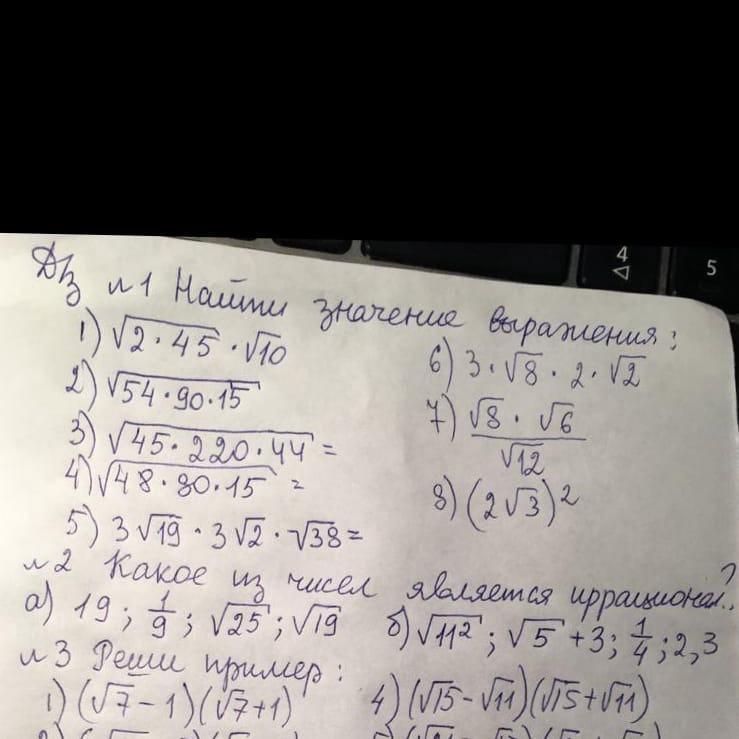 Д/з №1 Найти значение выражения:
1) √(2·45) · √10
2) √(54·90·15)
3) √(45·220·44) =
4) √(48·80·15) =
5) 3√19 · 3√2 · √38 =
6) 3·√8 · 2·√2
7) (√8 · √6)/√12
8) (2√3)²
№2 Какое из чисел является иррационал.?
а) 19; 1/9; √25; √19
б) √11²; √5 + 3; 1/4; 2,3
№3 Реши пример:
1) (√7 - 1)(√7 + 1)
4) (√15 - √11)(√15 + √11)
4
5